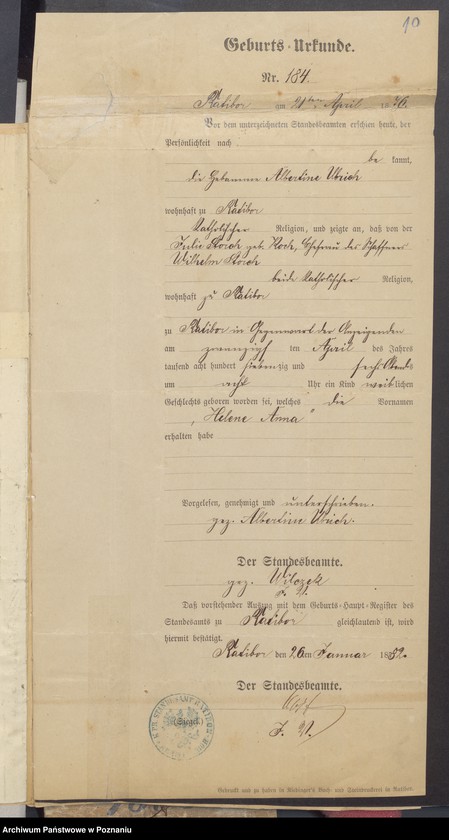 10
Geburts-Urkunde.
Nr. 184.
Ratibor am 21ten April 1876.
Vor dem unterzeichneten Standesbeamten erschien heute, der
Persönlichkeit nach
be kannt,
die Hebamme Albertine Ulrich
wohnhaft zu Ratibor
katholischer Religion, und zeigte an, daß von der
Julie Storch geb. Koch, Ehefrau des Schaffners
Wilhelm Storch
beide katholischer Religion,
wohnhaft zu Ratibor
zu Ratibor in Gegenwart der Anzeigenden
am zwanzigsten April des Jahres
tausend acht hundert siebenzig und sechs Abends
um acht Uhr ein Kind weiblichen
Geschlechts geboren worden sei, welches die Vornamen
„Helene Anna"
erhalten habe
Vorgelesen, genehmigt und unterschrieben.
gez. Albertine Ulrich.
Der Standesbeamte.
gez. Wilczek
Daß vorstehender Auszug mit dem Geburts-Haupt-Register des
Standesamts zu Ratibor gleichlautend ist, wird
hiermit bestätigt.
Ratibor den 26ten Januar 1882.
Der Standesbeamte.
(Siegel.)
J. V.
Archiwum Państwowe w Poznaniu